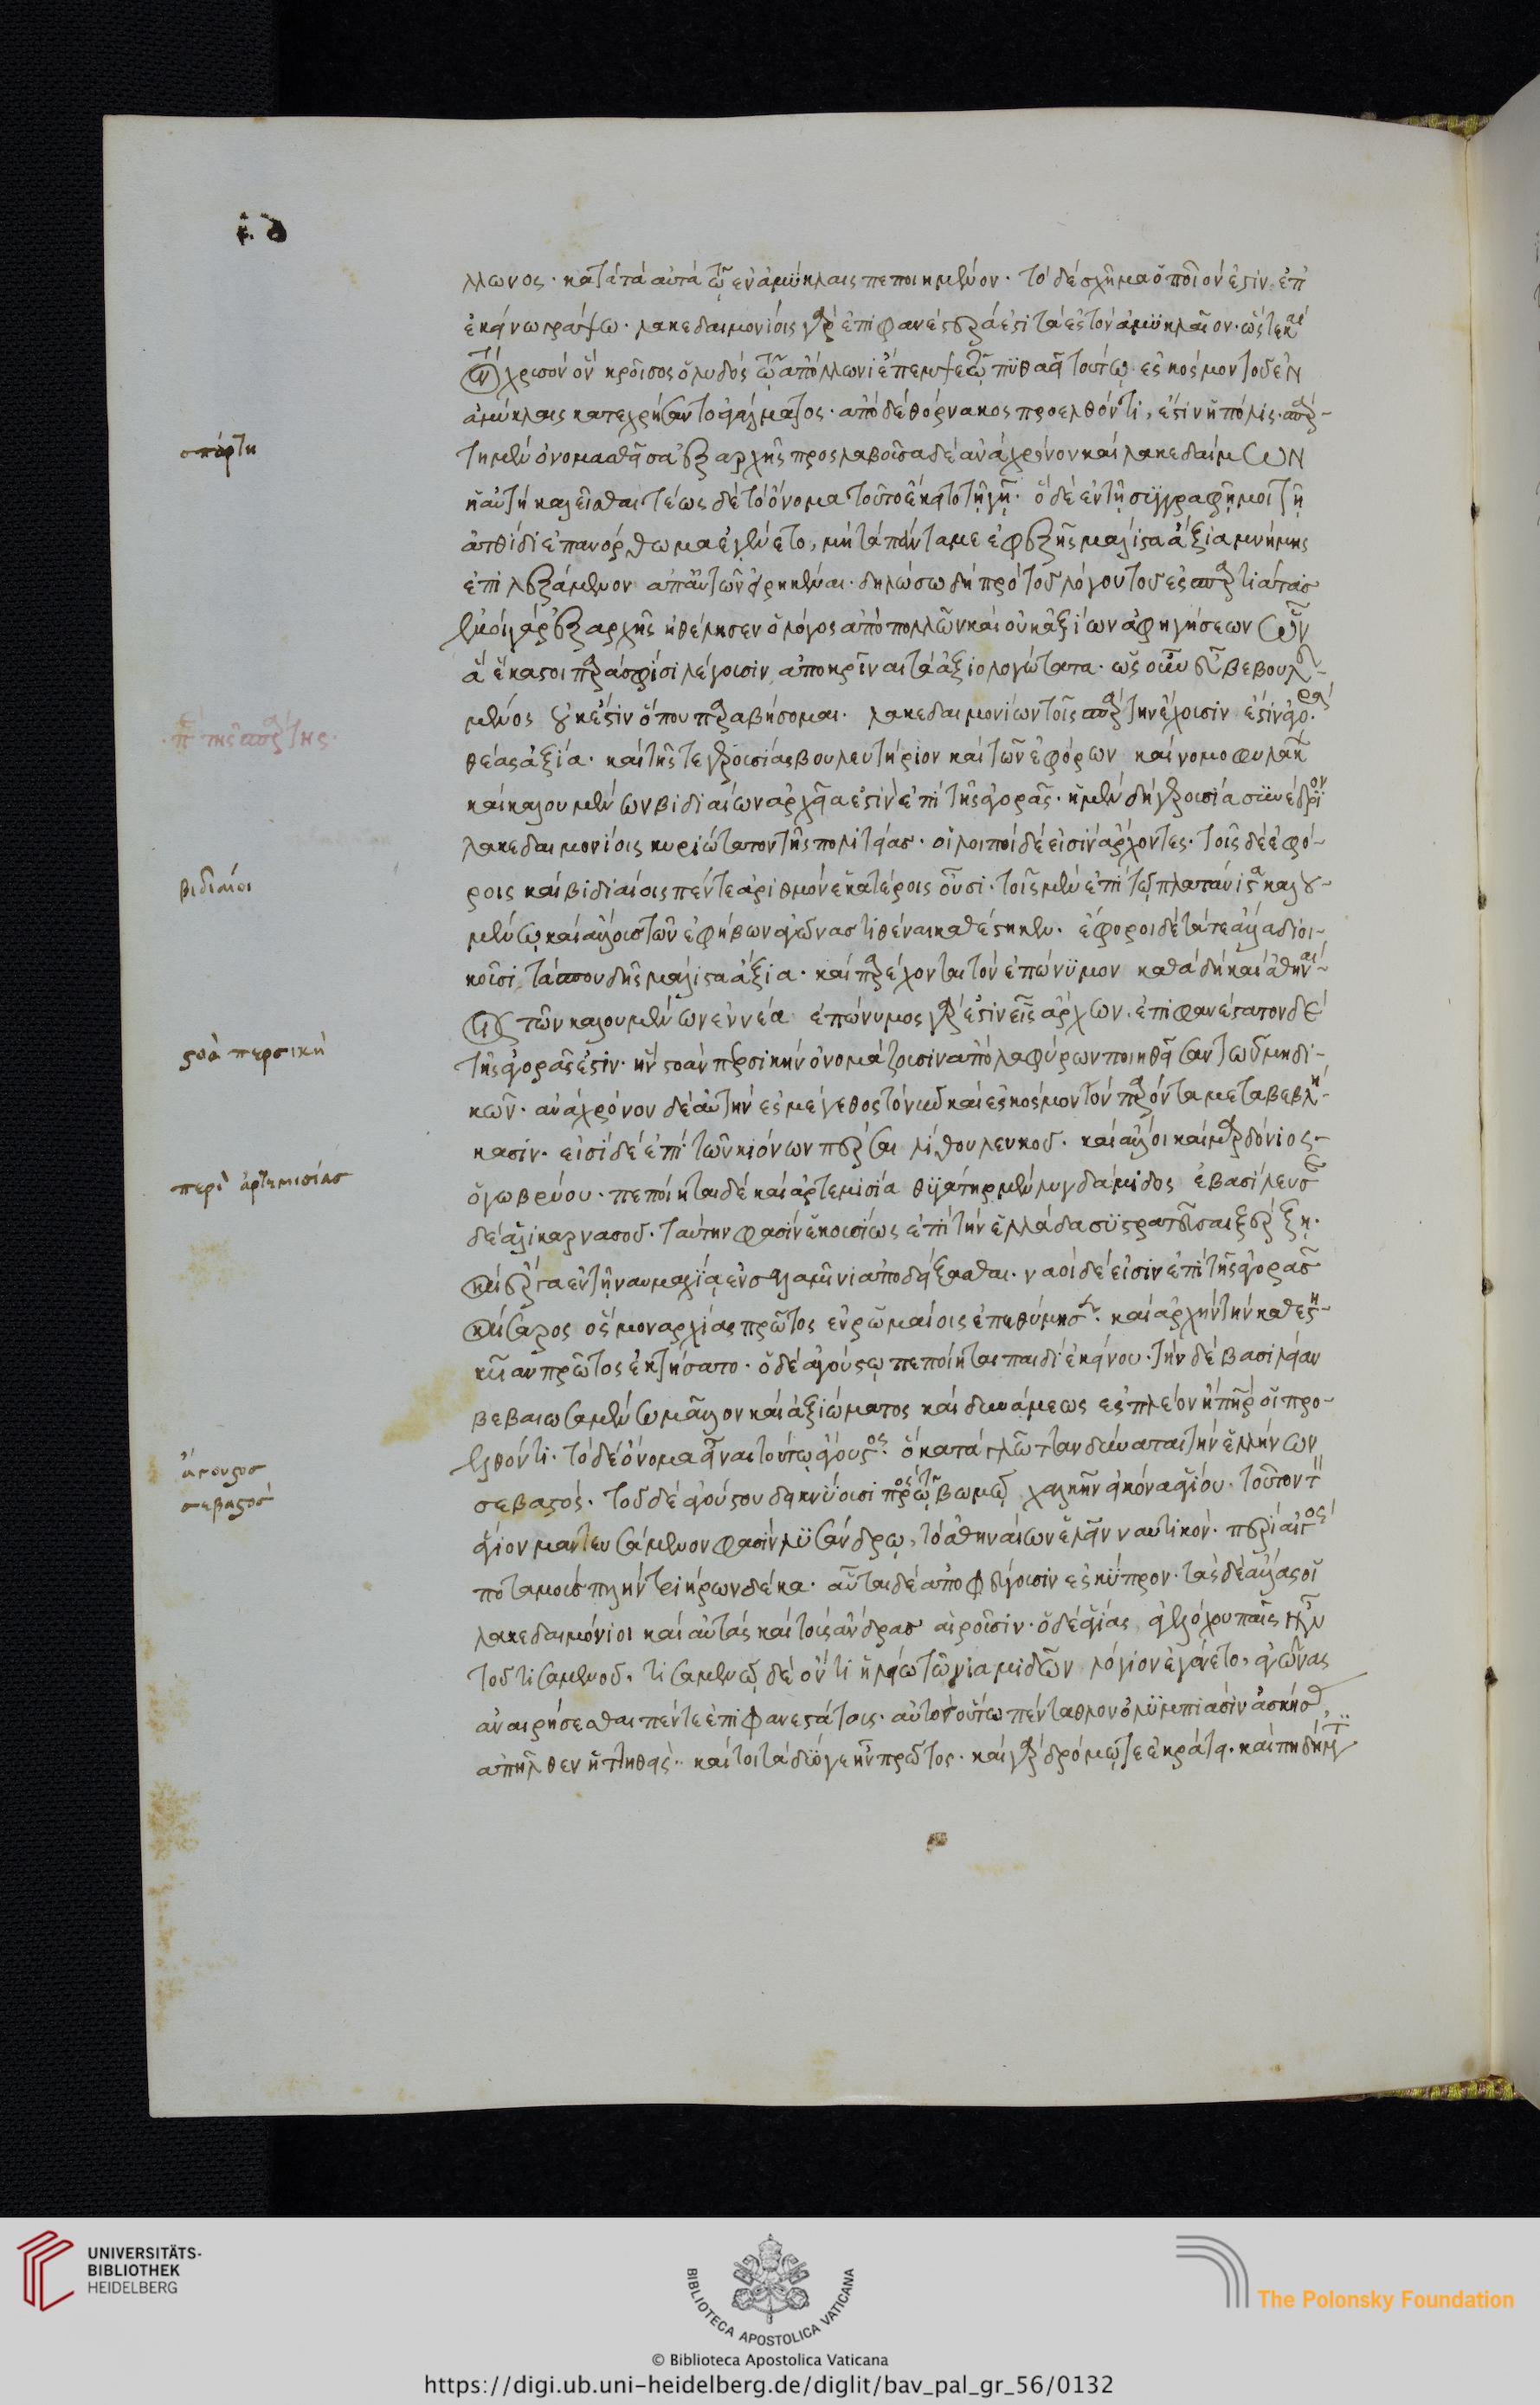 λλωνος· κατὰ τὰ αὐτὰ τῷ ἐν ἀμύκλαις πεποιημένον· τὸ δὲ σχῆμα ὁποῖόν ἐστιν ἐπ'
ἐκείνω γράψω· λακεδαιμονίοις γὰρ ἐπιφανέστερά ἐστι τὰ ἐς τὸν ἀμυκλαῖον· ὥστε καὶ
τὸν χρυσὸν ὃν κροῖσος ὁ λυδὸς τῷ ἀπόλλωνι ἔπεμψε τῷ πυθαεῖ τούτῳ ἐς κόσμον τοῦ ἐν
ἀμύκλαις κατεχρήσαντο ἀγάλματος· ἀπὸ δὲ θόρνακος προελθόντι, ἐστὶν ἡ πόλις· σπάρ-
τη μὲν ὀνομασθεῖσα ἐξ ἀρχῆς προσλαβοῦσα δὲ ἀνὰ χρόνον καὶ λακεδαίμων
ἡ αὐτὴ καλεῖσθαι· τέως δὲ τὸ ὄνομα τοῦτο ἔκειτο τῇ γῇ· ὃ δὲ ἐν τῇ συγγραφῇ μοι τῇ
ἀτθίδι ἐπανόρθωμα ἐγένετο, μὴ τὰ πάντα με ἐφεξῆς μάλιστα ἄξια μνήμης
ἐπιλεξάμενον ἀπ' αὐτῶν εἰρηκέναι· δηλώσω δὴ πρὸ τοῦ λόγου τοῦ ἐς σπαρτιάτας
ἐμοὶ γὰρ ἐξ ἀρχῆς ἠθέλησεν ὁ λόγος ἀπὸ πολλῶν καὶ οὐκ ἀξίων ἀφηγήσεων ὧν
ἃ ἕκαστοι παρὰ σφίσι λέγουσιν, ἀποκρῖναι τὰ ἀξιολογώτατα· ὡς οὖν εὖ βεβουλευ-
μένος οὐκ ἔστιν ὅπου παραβήσομαι· λακεδαιμονίων τοῖς σπάρτην ἔχουσιν ἐστὶν ἀγορὰ
θέας ἀξία· καὶ τῆς τε γερουσίας βουλευτήριον καὶ τῶν ἐφόρων καὶ νομοφυλάκων
καὶ καλουμένων βιδιαίων ἀρχεῖα ἐστὶν ἐπὶ τῆς ἀγορᾶς· ἡ μὲν δὴ γερουσία συνέδριον
λακεδαιμονίοις κυριώτατον τῆς πολιτείας· οἱ λοιποὶ δέ εἰσιν ἄρχοντες· τοῖς δὲ ἐφό-
ροις καὶ βιδιαίοις πέντε ἀριθμὸν ἑκατέροις οὖσι· τοῖς μὲν ἐπὶ τῷ πλατανιστᾷ καλου-
μένῳ καὶ ἄλλους τῶν ἐφήβων ἀγῶνας τιθέναι καθέστηκεν· ἔφοροι δὲ τά τε ἄλλα διοι-
κοῦσι, τὰ σπουδῆς μάλιστα ἄξια· καὶ παρέχονται τὸν ἐπώνυμον καθὰ δὴ καὶ ἀθηναί-
οις τῶν καλουμένων ἐννέα ἐπώνυμος γάρ ἐστιν εἷς ἄρχων· ἐπιφανέστατον δὲ
τῆς ἀγορᾶς ἐστιν· ἣν στοὰν περσικὴν ὀνομάζουσιν ἀπὸ λαφύρων ποιηθεῖσαν τῶν μηδι-
κῶν· ἀνὰ χρόνον δὲ αὐτὴν ἐς μέγεθος τὸ νῦν καὶ ἐς κόσμον τὸν παρόντα μεταβεβλή-
κασιν· εἰσὶ δὲ ἐπὶ τῶν κιόνων πέρσαι λίθου λευκοῦ· καὶ ἄλλοι καὶ μαρδόνιος
ὁ γωβρύου· πεποίηται δὲ καὶ ἀρτεμισία θυγάτηρ μὲν λυγδάμιδος ἐβασίλευσε
δὲ ἁλικαρνασοῦ· ταύτην φασὶν ἑκουσίως ἐπὶ τὴν ἑλλάδα συστρατεῦσαι ξέρξῃ·
καὶ ἔργα ἐν τῇ ναυμαχίᾳ ἐν σαλαμῖνι ἀποδείξασθαι· ναοὶ δέ εἰσιν ἐπὶ τῆς ἀγορᾶς
καίσαρος ὃς μοναρχίας πρῶτος ἐν ῥωμαίοις ἐπεθύμησε· καὶ ἀρχὴν τὴν καθεστη-
κυῖαν πρῶτος ἐκτήσατο· ὁ δὲ αὐγούστῳ πεποίηται παιδὶ ἐκείνου· τὴν δὲ βασιλείαν
βεβαιωσαμένῳ μᾶλλον καὶ ἀξιώματος καὶ δυνάμεως ἐς πλέον ἢ πατὴρ οἱ προ-
ελθόντι· τὸ δὲ ὄνομα εἶναι τούτῳ αὔγουστος· ὃ κατὰ γλῶτταν δύναται τὴν ἑλλήνων
σεβαστός· τοῦ δὲ αὐγούστου δεικνύουσι πρὸς τῷ βωμῷ χαλκῆν εἰκόνα ἀγίου· τοῦτον τὸν
ἀγίον μαντευσάμενον φασὶν λυσάνδρῳ, τὸ ἀθηναίων ἑλεῖν ναυτικόν· περὶ αἰγὸς
ποταμοὺς πλὴν τριήρων δέκα· αὗται δὲ ἀποφεύγουσιν ἐς κύπρον· τὰς δὲ ἄλλας οἱ
λακεδαιμόνιοι καὶ αὐτὰς καὶ τοὺς ἄνδρας αἱροῦσιν· ὁ δὲ ἀγίας ἀγελόχου παῖς ἦν
τοῦ τισαμενοῦ· τισαμενῷ δὲ ὄντι ἠλείῳ τῶν ἰαμιδῶν λόγιον ἐγένετο, ἀγῶνας
ἀναιρήσεσθαι πέντε ἐπιφανεστάτους· αὐτὸν οὕτω πένταθλον ὀλυμπιάσιν ἀσκήσας
ἀπῆλθεν ἡττηθείς· καίτοι τὰ δύο γε ἦν πρῶτος· καὶ γὰρ δρόμῳ τε ἐκράτει· καὶ πηδήματι
σπάρτη
π τῆς σπάρτης
βιδιαῖοι
στοὰ περσικὴ
περὶ ἀρτεμισίας
ἄγουστος
σεβαστός
UNIVERSITÄTS-
BIBLIOTHEK
HEIDELBERG
BIBLIOTECA APOSTOLICA VATICANA
The Polonsky Foundation
© Biblioteca Apostolica Vaticana
https://digi.ub.uni-heidelberg.de/diglit/bav_pal_gr_56/0132